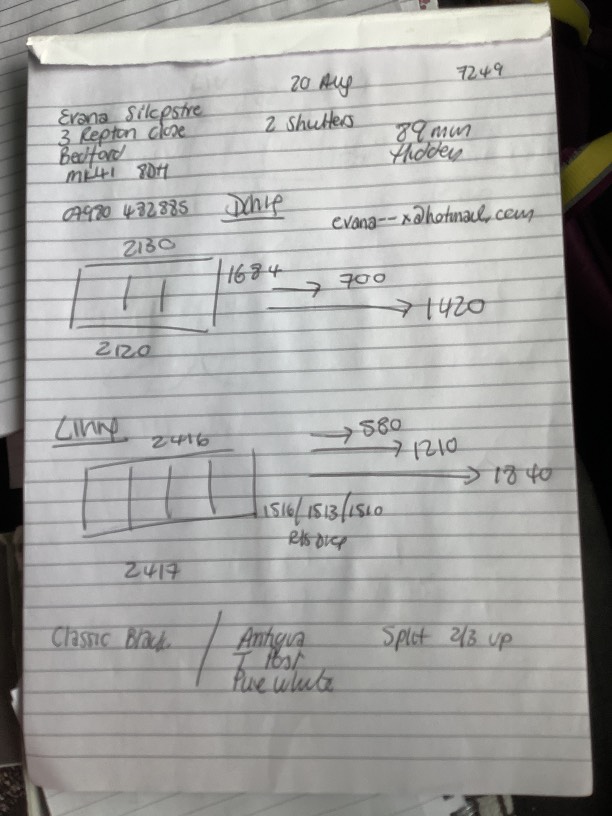 20 Aug 7249
Evana Silcpstre
3 Repton Close
2 Shutters
89 mm
Bedford
Hidden
MK41 8DH
07980 432885
evana--x@hotmail.com
2130
1684 → 700
→ 1420
2120
2416
→ 580
→ 1210
→ 1840
1516/1513/1510
R/S
2417
Classic Black / Antigua Split 2/3 up
T Post
Pure White